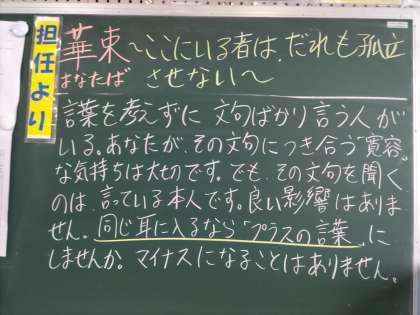 担任より
華束 ～ここにいる者は、だれも孤立
はなたば させない～
言葉を考えずに文句ばかり言う人が
いる。あなたが、その文句につき合う"寛容"
な気持ちは大切です。でも、その文句を聞く
のは、言っている本人です。良い影響はありま
せん。同じ耳に入るなら「プラスの言葉」に
しませんか。マイナスになることはありません。